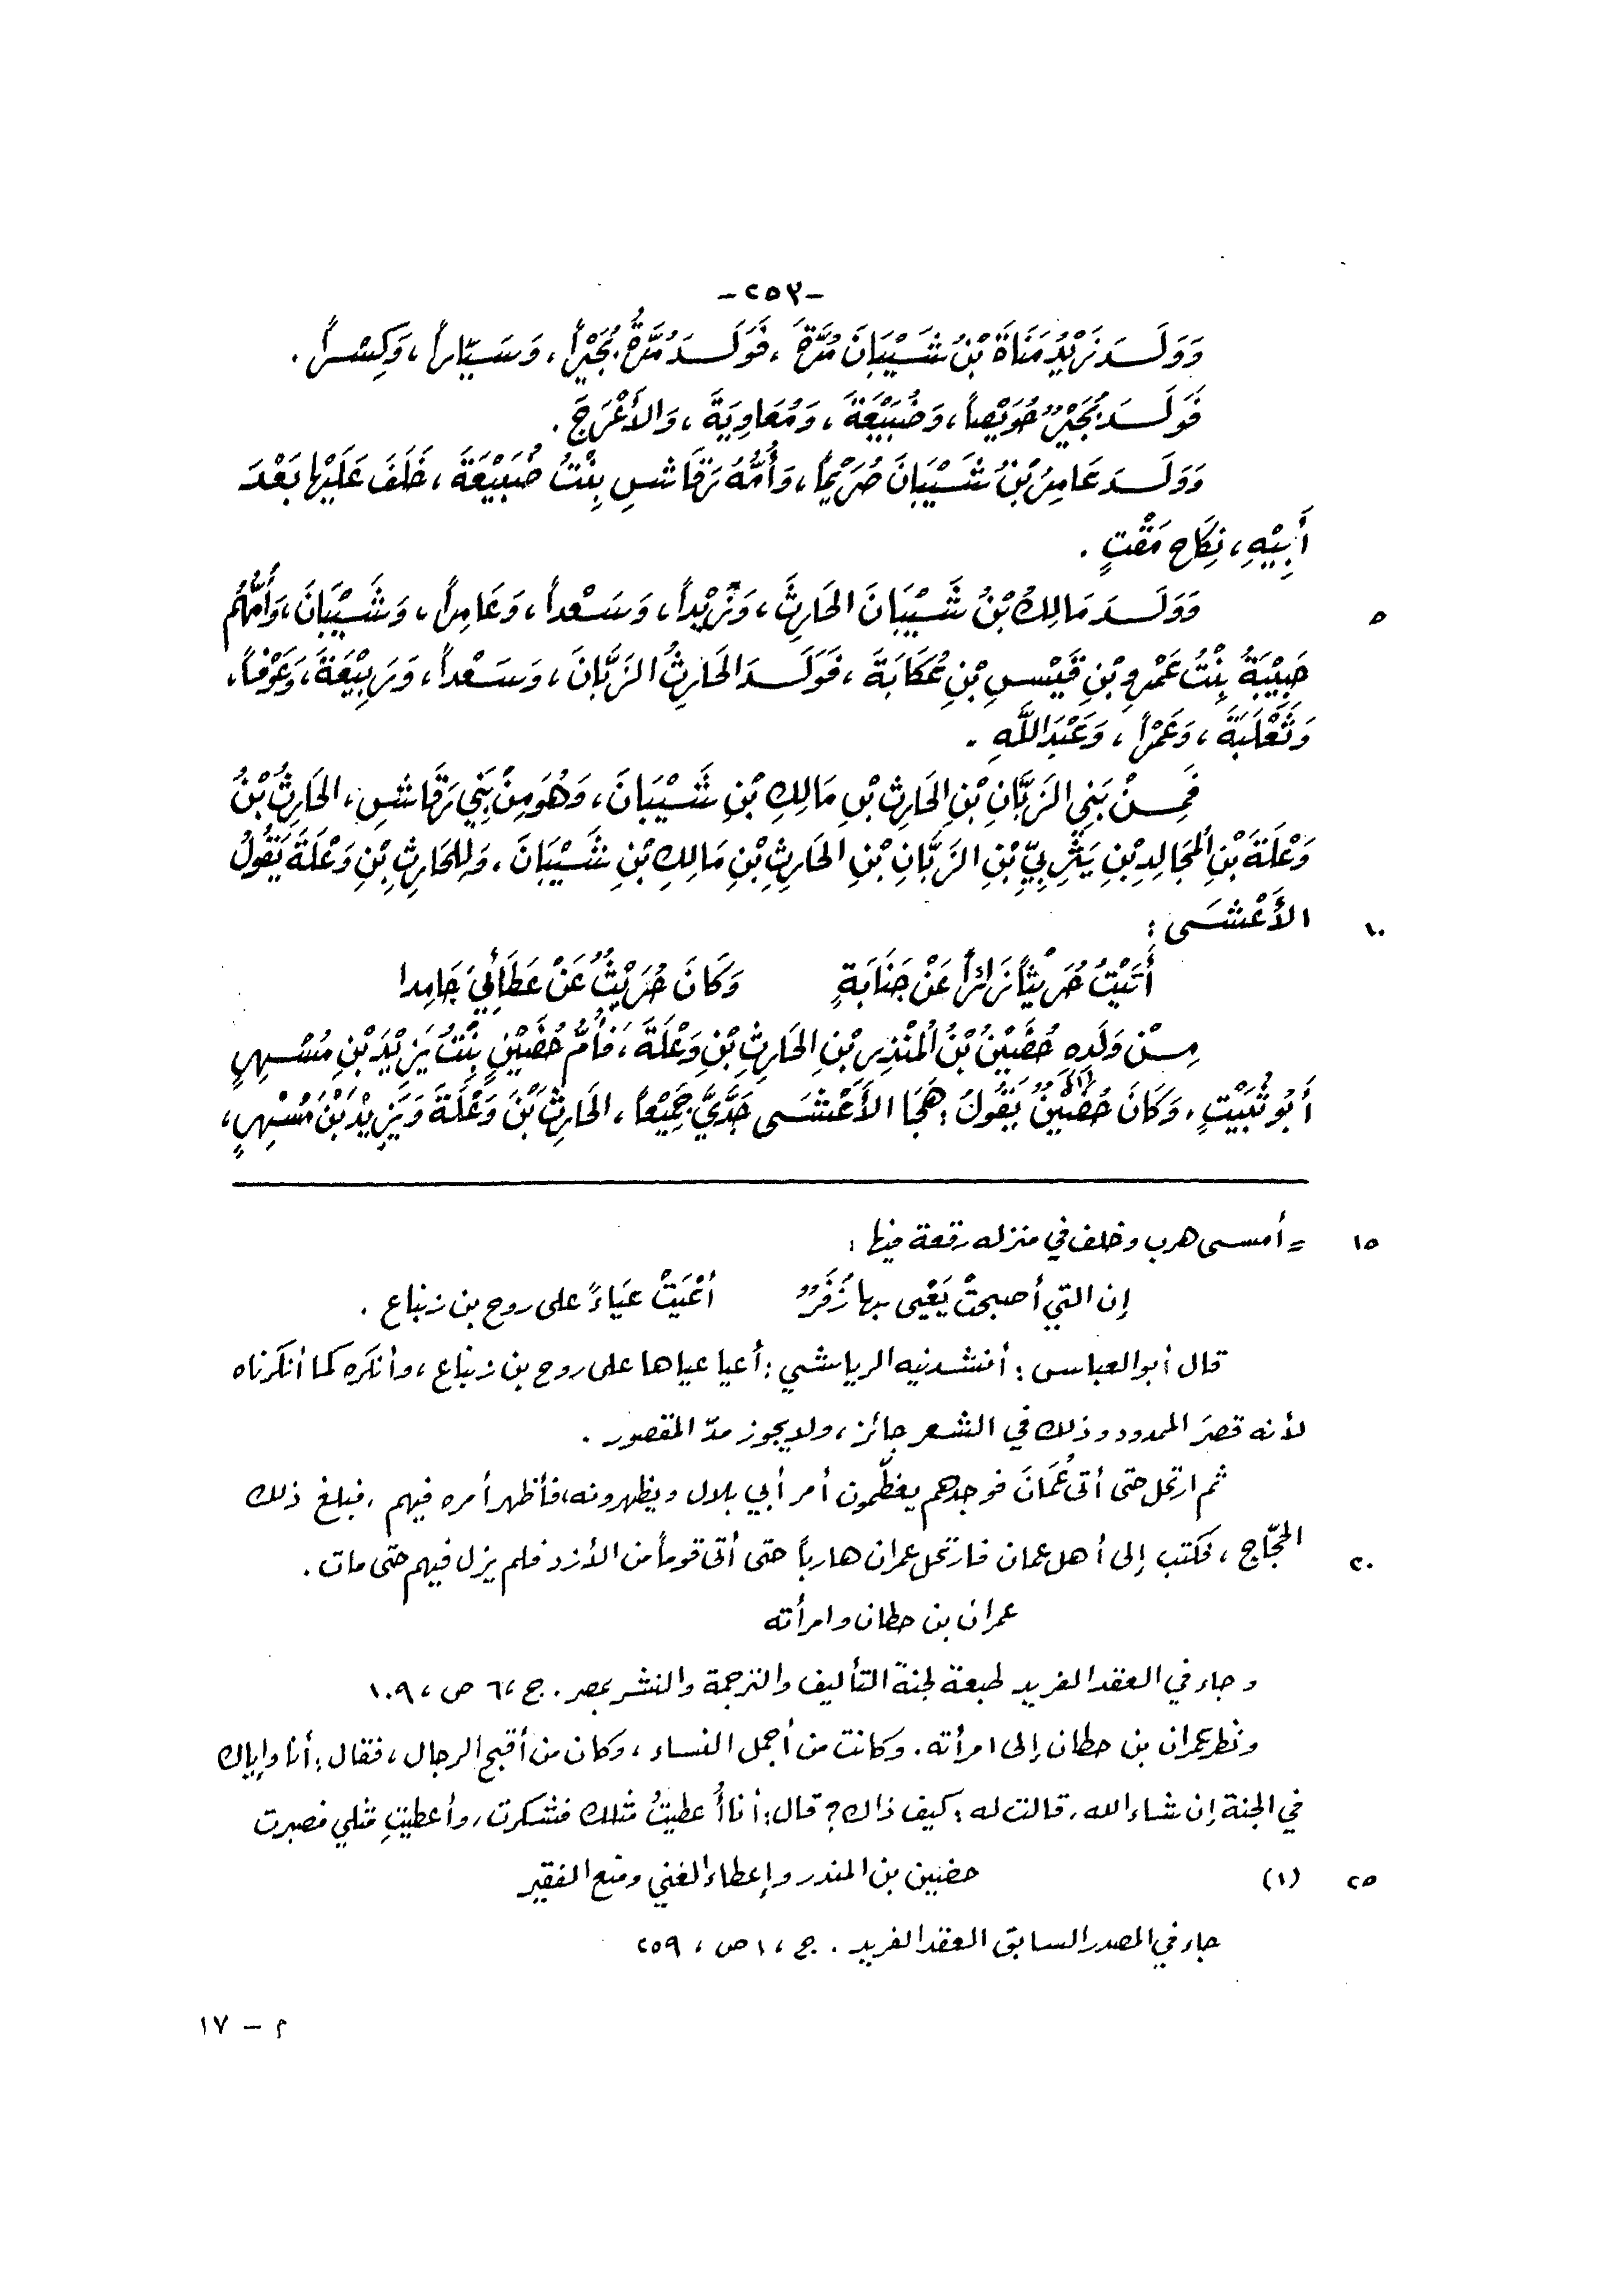 -٢٥٣-
وَوَلَـدَ زَيْدُ مَنَاةَ بْنُ شَيْبَانَ مُرَّةَ ، فَوَلَـدَ مُرَّةُ بُجَيْراً ، وَسَيَّاراً ، وَكِسْراً .
فَوَلَـدَ بُجَيْرٌ حُوَيْصاً ، وَضُبَيْعَةَ ، وَمُعَاوِيَةَ ، وَالأَعْرَجَ .
وَوَلَـدَ عَامِرُ بْنُ شَيْبَانَ صُرَيْماً ، وَأُمُّهُ رَقَاشِ بِنْتُ ضُبَيْعَةَ ، خَلَفَ عَلَيْهَا بَعْدَ
أَبِيْهِ ، نِكَاحَ مَقْتٍ .
٥ وَوَلَـدَ مَالِكُ بْنُ شَيْبَانَ الحَارِثَ ، وَزَيْداً ، وَسَعْداً ، وَعَامِراً ، وَشَيْبَانَ ، وَأُمُّهُم
حَبِيْبَةُ بِنْتُ عَمْرِو بْنِ قَيْسِ بْنِ عُكَابَةَ ، فَوَلَـدَ الحَارِثُ الزَّبَّانَ ، وَسَعْداً ، وَرَبِيْعَةَ ، وَعَوْفاً ،
وَثَعْلَبَةَ ، وَعَمْراً ، وَعَبْدَ اللَّهِ .
فَمِنْ بَنِي الزَّبَّانِ بْنِ الحَارِثِ بْنِ مَالِكِ بْنِ شَيْبَانَ ، وَهُوَ مِنْ بَنِي رَقَاشِ ، الحَارِثُ بْنُ
وَعْلَةَ بْنِ المُجَالِدِ بْنِ يَثْرِبِيِّ بْنِ الزَّبَّانِ بْنِ الحَارِثِ بْنِ مَالِكِ بْنِ شَيْبَانَ ، وَلِلحَارِثِ بْنِ وَعْلَةَ يَقُولُ
١٠ الأَعْشَى :
أَتَيْتُ حُرَيْثاً زَائِراً عَنْ جَنَابَةٍ وَكَانَ حُرَيْثٌ عَنْ عَطَائِيَ جَامِدا
مِنْ وَلَدِهِ حُضَيْنُ بْنُ المُنْذِرِ بْنِ الحَارِثِ بْنِ وَعْلَةَ ، فَأُمُّ حُضَيْنٍ بِنْتُ يَزِيْدَ بْنِ مُسْهِرٍ
أَبُو ثُبَيْتٍ ، وَكَانَ حُضَيْنٌ (١) يَقُولُ : هَجَا الأَعْشَى جَدَّيَّ جَمِيْعاً ، الحَارِثَ بْنَ وَعْلَةَ وَيَزِيْدَ بْنَ مُسْهِرٍ ،
١٥ = أمسى هرب وخلف في منزله رقعة فيها :
إن التي أصبحتْ يَعْيى بها زُفَرٌ أعْيَتْ عَيَاءً على روح بن زنباع .
قال أبو العباس : أنشدنيه الرياشي : أعيا عياها على روح بن زنباع ، وأنكره كما أنكرناه
لأنه قصرَ الممدود وذلك في الشعر جائز ، ولا يجوز مدّ المقصور .
ثم ارتحل حتى أتى عُمَانَ فوجدهم يعظّمون أمر أبي بلال ويظهرونه ، فأظهر أمره فيهم ، فبلغ ذلك
٢٠ الحجّاج ، فكتب إلى أهل عمان فارتحل عمران هارباً حتى أتى قوماً من الأزد فلم يزل فيهم حتى مات .
عمران بن حطان وامرأته
وجاء في العقد الفريد طبعة لجنة التأليف والترجمة والنشر بمصر . ج ، ٦ ص ، ١٠٩
ونظر عمران بن حطان إلى امرأته . وكانت من أجمل النساء ، وكان من أقبح الرجال ، فقال : أنا وإياك
في الجنة إن شاء الله ، قالت له : كيف ذاك ؟ قال : أنا أُعطيتُ مثلك فشكرت ، وأعطيتِ مثلي فصبرت
٢٥ (١) حضين بن المنذر وإعطاء الغني ومنع الفقير
جاء في المصدر السابق العقد الفريد . ج ، ١ ص ، ٢٥٩
م - ١٧